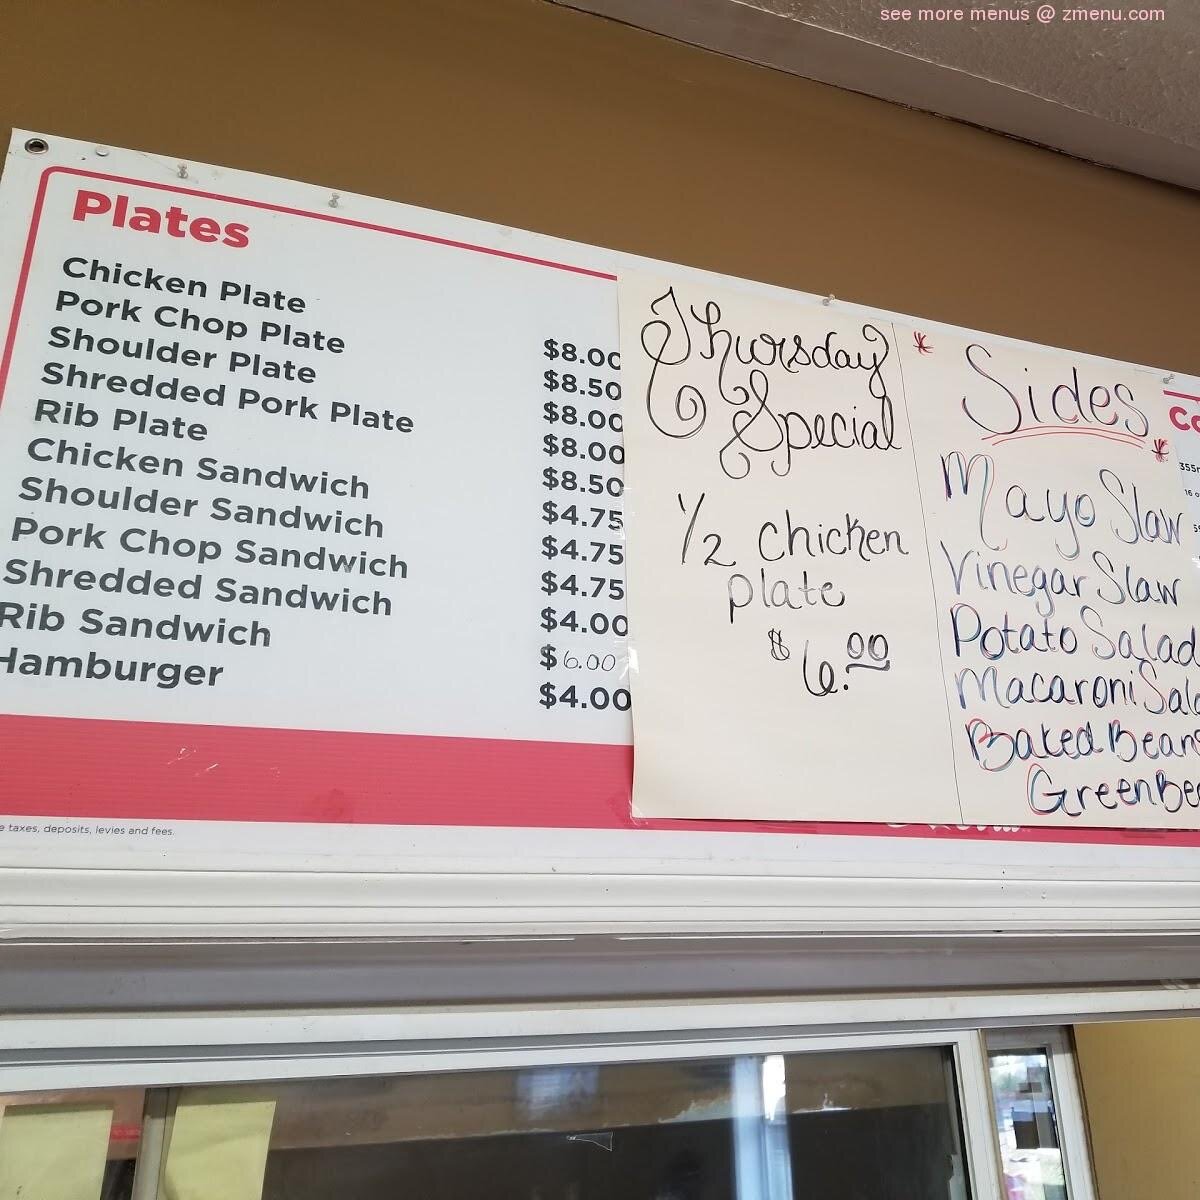 see more menus @ zmenu.com
Plates
Chicken Plate $8.00
Pork Chop Plate $8.50
Shoulder Plate $8.00
Shredded Pork Plate $8.00
Rib Plate $8.50
Chicken Sandwich $4.75
Shoulder Sandwich $4.75
Pork Chop Sandwich $4.75
Shredded Sandwich $4.00
Rib Sandwich $6.00
Hamburger $4.00
taxes, deposits, levies and fees.
Thursday
Special
1/2 chicken
plate
$6.00
* Sides *
Mayo Slaw
Vinegar Slaw
Potato Salad
Macaroni Sala
Baked Beans
Green Bea
Co
355
16 o